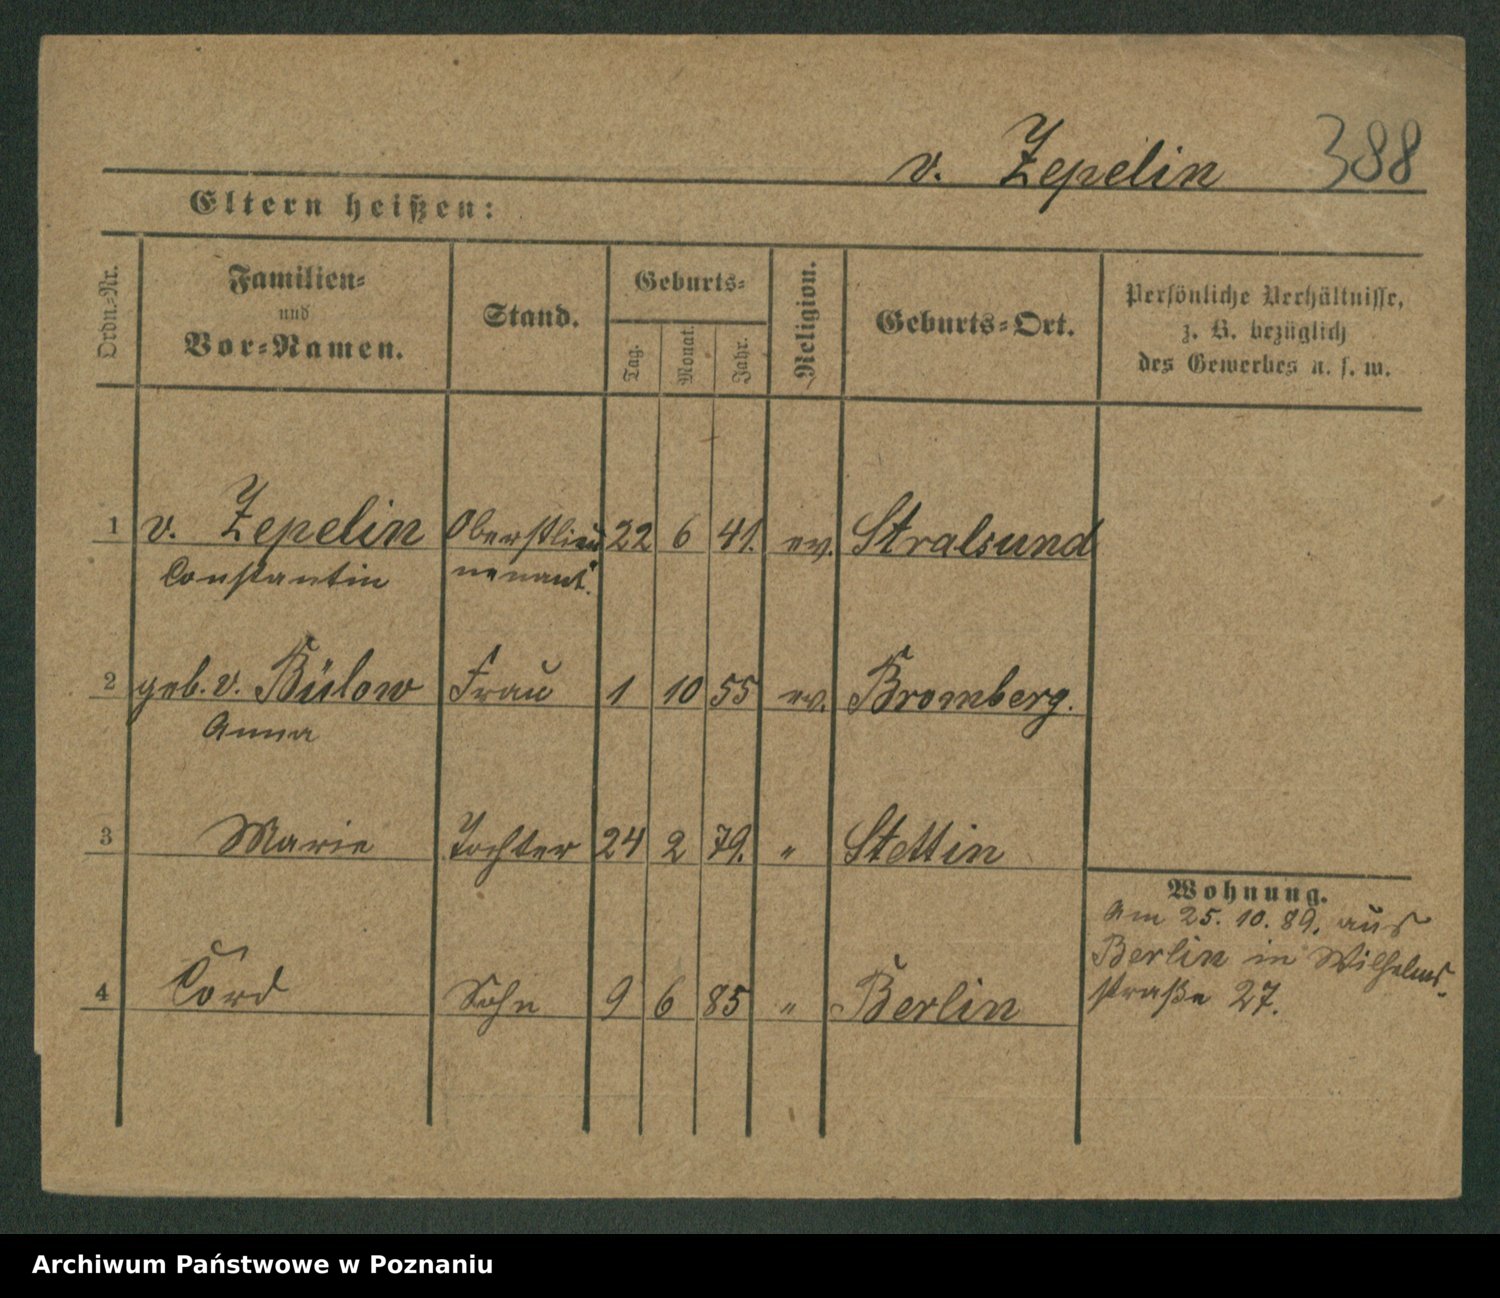 v. Zepelin 388
Eltern heißen:
Ordn.-Nr.
Familien-
und
Vor-Namen.
Stand.
Geburts-
Tag.
Monat.
Jahr.
Religion.
Geburts-Ort.
Persönliche Verhältnisse,
z. B. bezüglich
des Gewerbes u. s. w.
1 v. Zepelin Oberstlieu 22 6 41. ev. Stralsund
Constantin nenant.
2 geb. v. Bülow Frau 1 10 55 ev. Bromberg.
Anna
3 Marie Tochter 24 2 79. " Stettin
4 Cord Sohn 9 6 85 " Berlin
Wohnung.
Am 25. 10. 89. aus
Berlin in Wilhelms-
straße 27.
Archiwum Państwowe w Poznaniu